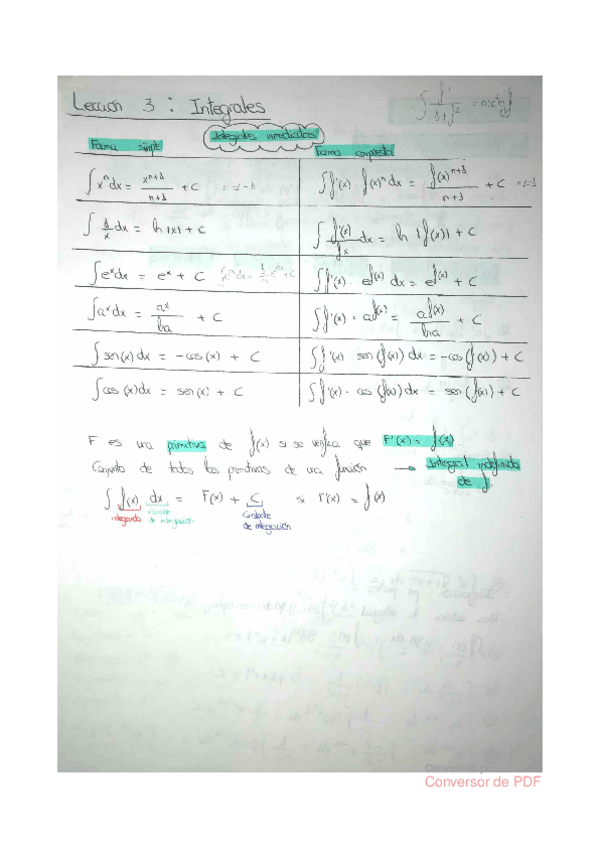 Lección 3 : Integrales
∫ f'/(1+f²) = arctg f
Integrales inmediatas
Forma simple
Forma compuesta
∫xⁿdx = xⁿ⁺¹/(n+1) + C n≠-1
∫f'(x) · f(x)ⁿ dx = f(x)ⁿ⁺¹/(n+1) + C
∫ 1/x dx = ln|x| + C
∫ f'(x)/fx dx = ln |f(x)| + C
∫eˣdx = eˣ + C
∫f'(x) · e^f(x) dx = e^f(x) + C
∫aˣdx = aˣ/lna + C
∫f'(x) · a^f(x) = a^f(x)/lna + C
∫sen(x) dx = -cos(x) + C
∫f'(x) sen(f(x)) dx = -cos(f(x)) + C
∫cos(x)dx = sen(x) + C
∫f'(x) · cos(f(x)) dx = sen(f(x)) + C
F es una primitiva de f(x) si se verifica que F'(x) = f(x).
Conjunto de todas las primitivas de una función → Integral indefinida
de f.
∫ f(x) dx = F(x) + C si F'(x) = f(x)
integrando variable de integración Constante
de integración
Conversor de PDF